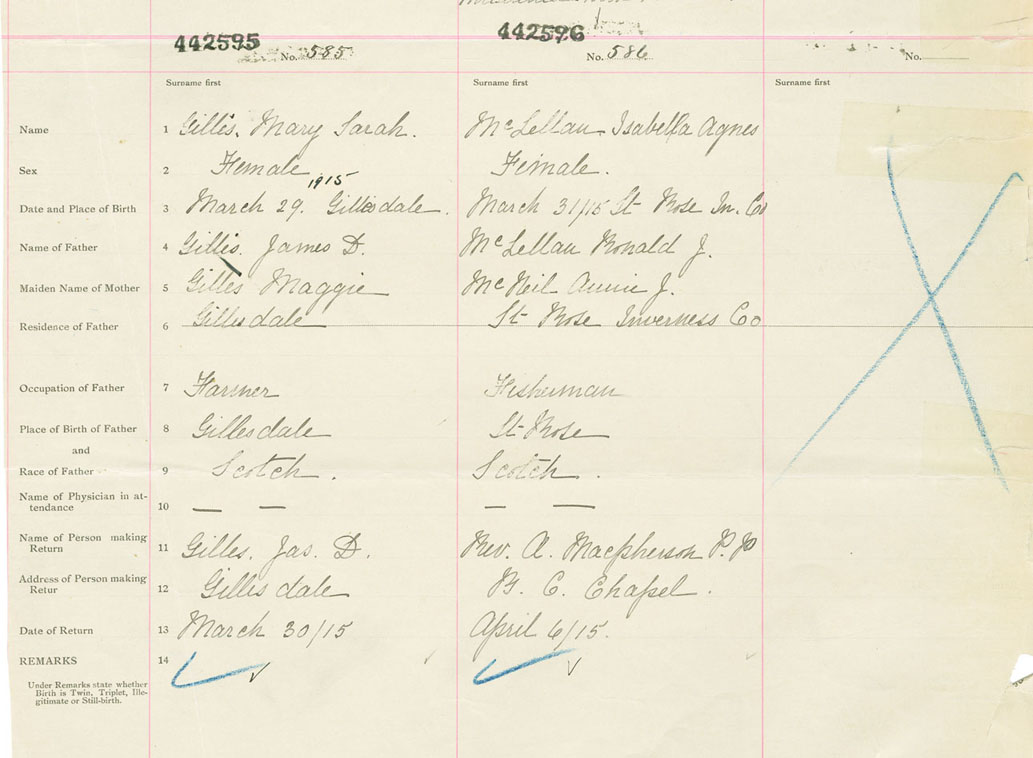 442595 442596
No. 585 No. 586 No.
Surname first Surname first Surname first
Name 1 Gillis, Mary Sarah. McLellan Isabella Agnes
Sex 2 Female Female.
1915
Date and Place of Birth 3 March 29. Gillisdale. March 31/15 St Rose In. Co
Name of Father 4 Gillis. James D. McLellan Ronald J.
Maiden Name of Mother 5 Gilles Maggie McNeil Annie J.
Residence of Father 6 Gillesdale St Rose Inverness Co
Occupation of Father 7 Farmer Fisherman
Place of Birth of Father 8 Gillesdale St Rose
and
Race of Father 9 Scotch. Scotch.
Name of Physician in at-
tendance 10 — — — —
Name of Person making
Return 11 Gilles. Jas. D. Rev. A. Macpherson P. P
Address of Person making
Retur 12 Gillisdale B. C. Chapel.
Date of Return 13 March 30/15 April 6/15.
REMARKS 14
Under Remarks state whether
Birth is Twin, Triplet, Ille-
gitimate or Still-birth.